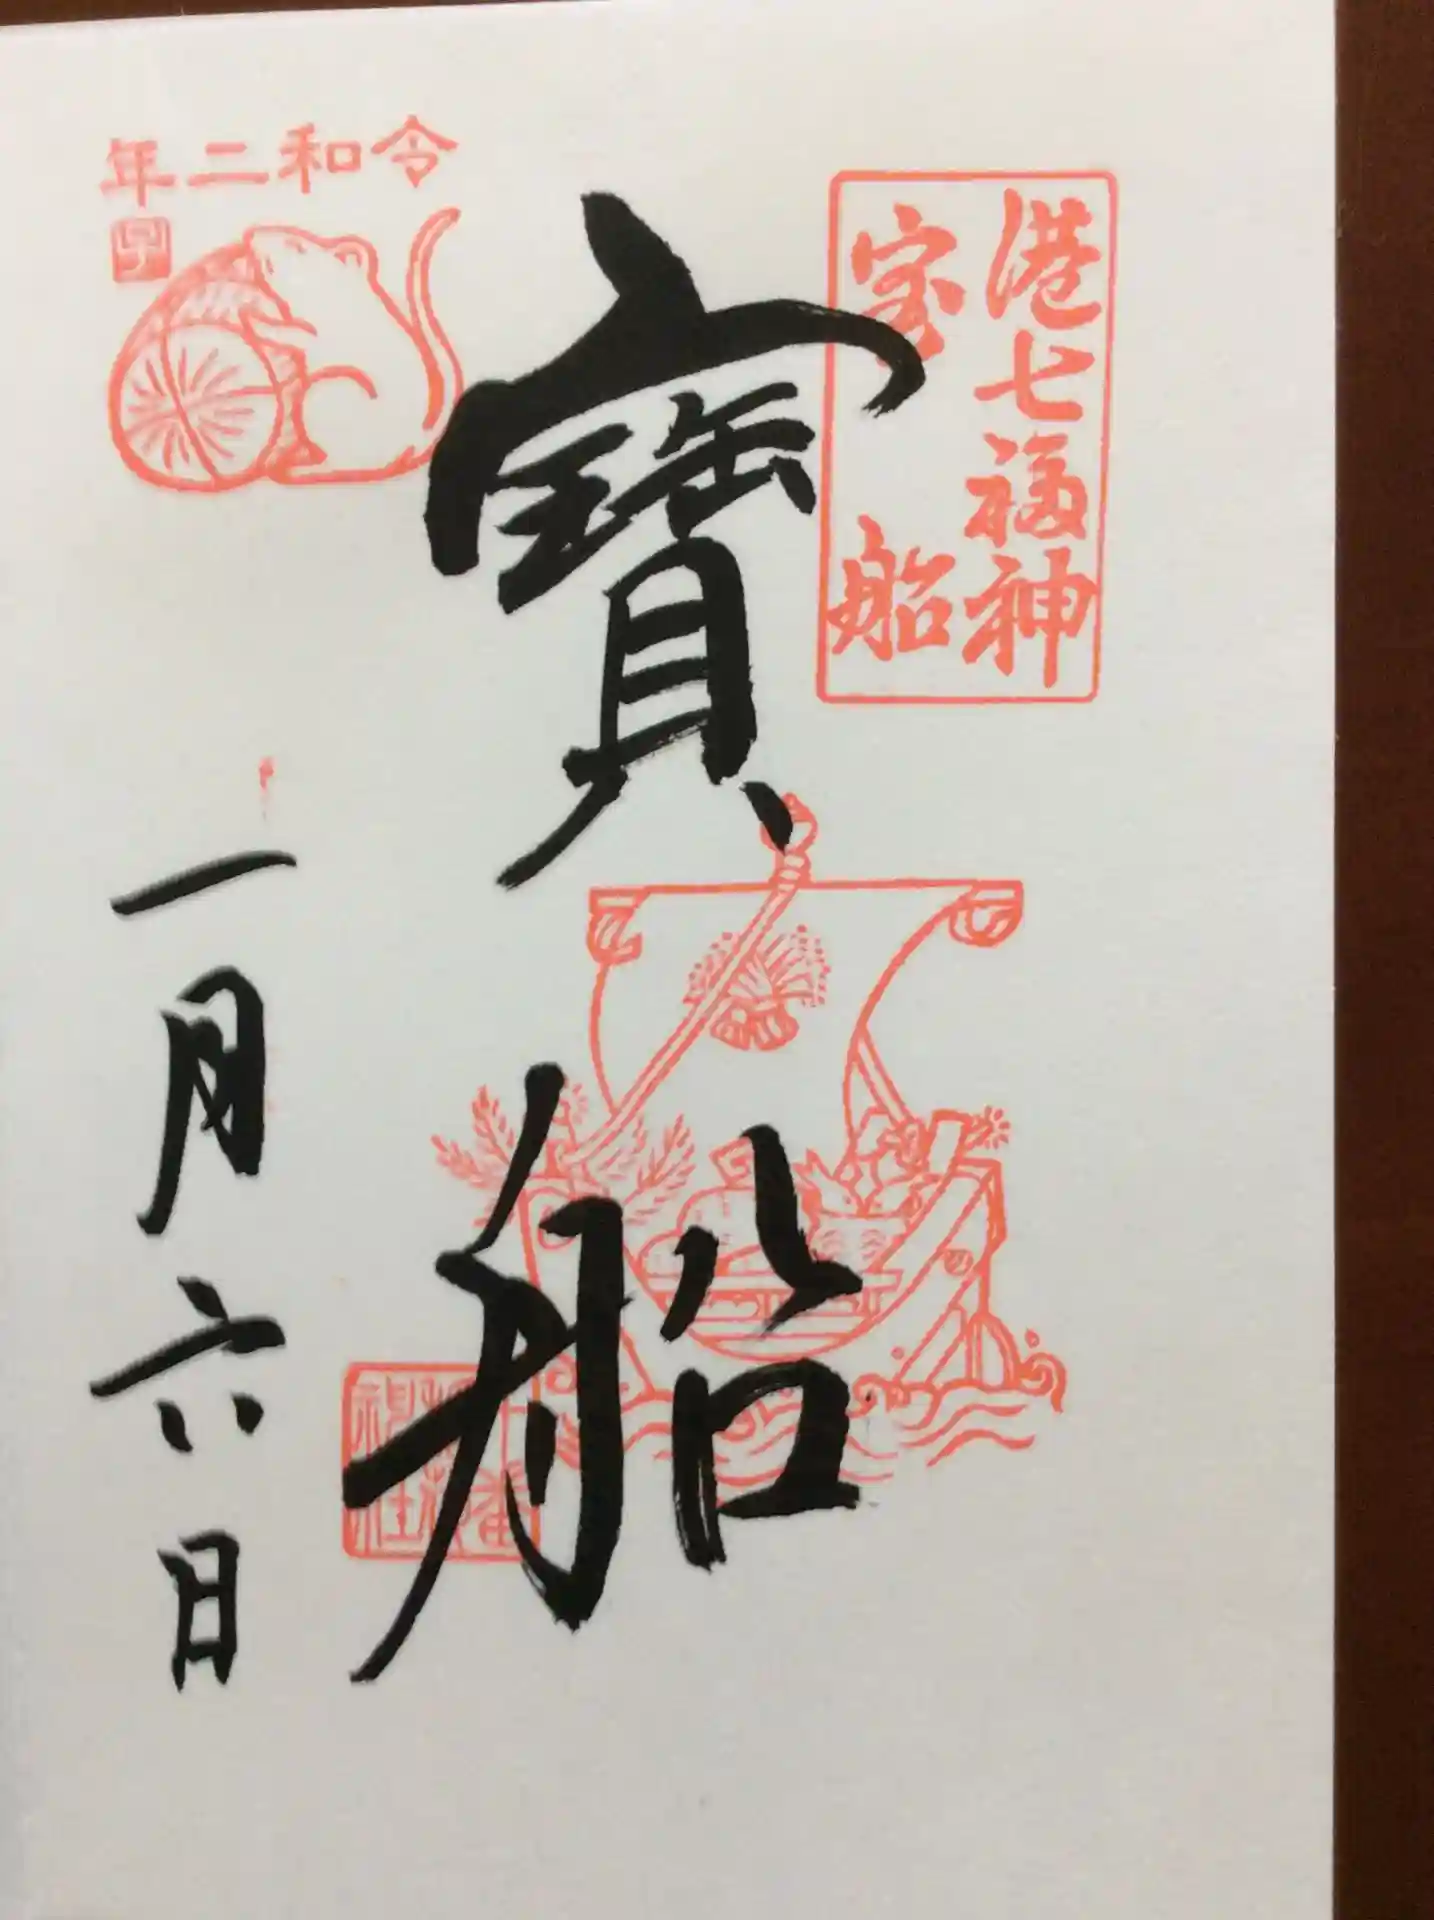 港七福神
宝船
寶船
令和二年
子
一月六日